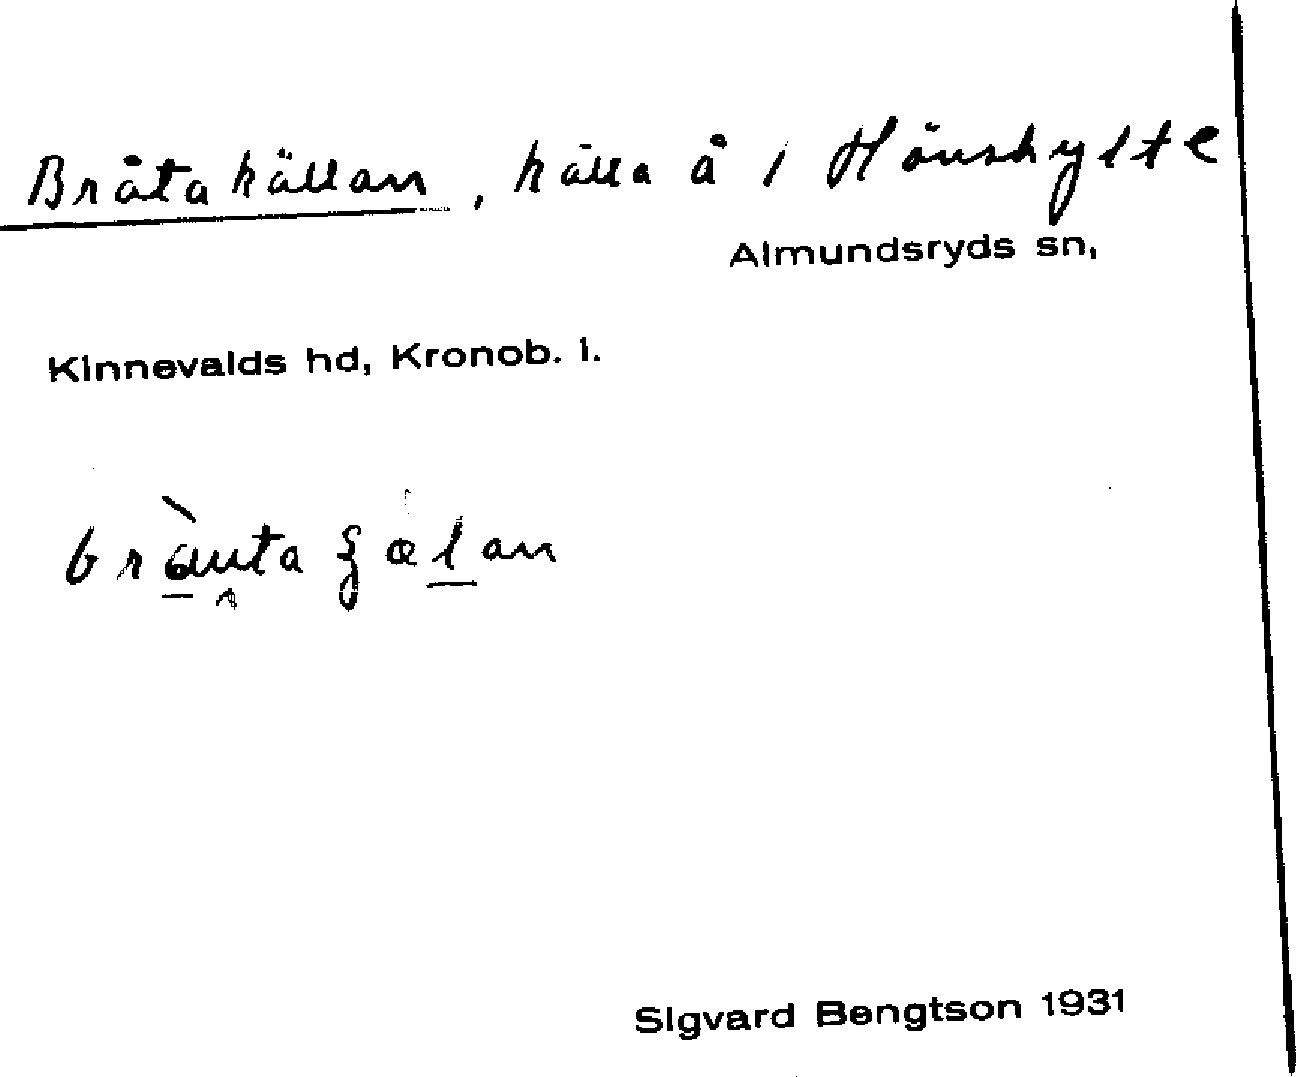 Bråtakällan, källa å 1 Hönshylte
Almundsryds sn,
Kinnevalds hd, Kronob. l.
Sigvard Bengtson 1931